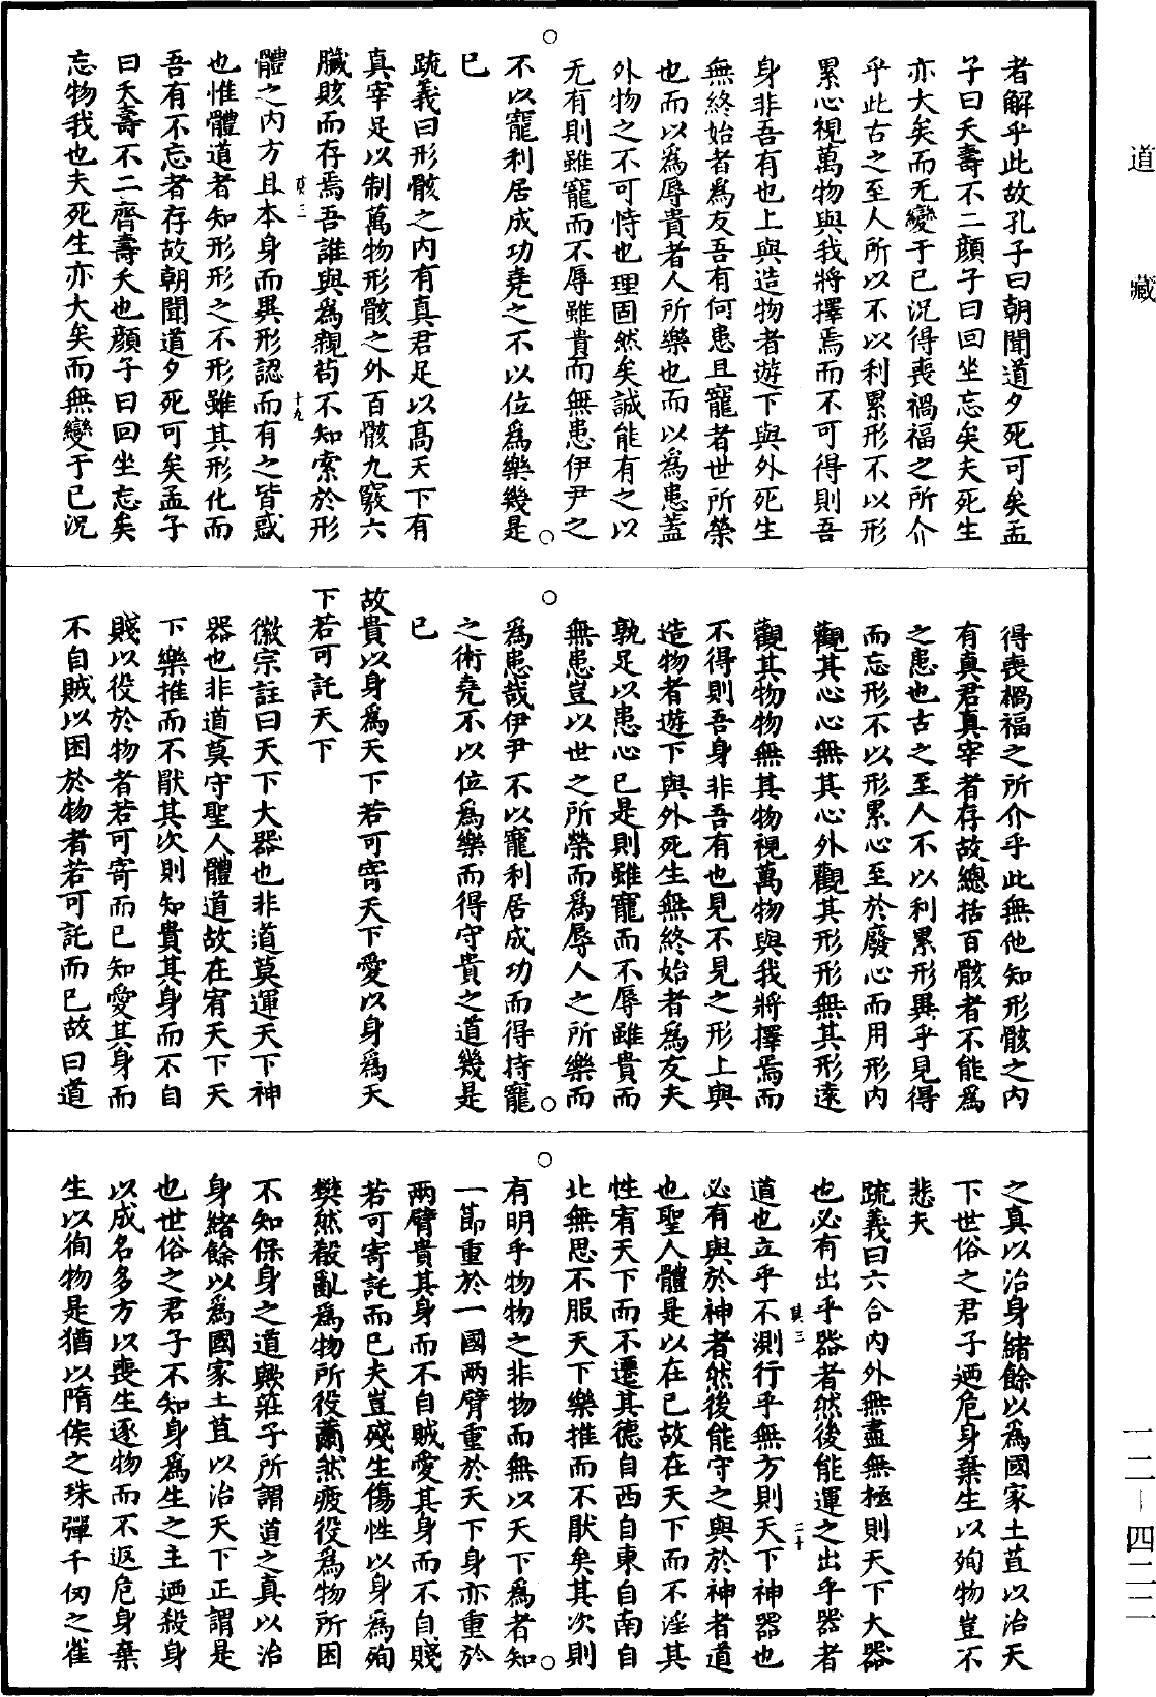 道藏
者解乎此故孔子曰朝聞道夕死可矣孟
子曰夭壽不二顏子曰回坐忘矣夫死生
亦大矣而无變于己況得喪禍福之所介
乎此古之至人所以不以利累形不以形
累心視萬物與我將擇焉而不可得則吾
身非吾有也上與造物者遊下與外死生
無終始者為友吾有何患且寵者世所榮
也而以為辱貴者人所樂也而以為患蓋
外物之不可恃也理固然矣誠能有之以
无有則雖寵而不辱雖貴而無患伊尹之
不以寵利居成功堯之不以位為樂幾是
已
疏義曰形骸之內有真君足以高天下有
真宰足以制萬物形骸之外百骸九竅六
臟賅而存焉吾誰與為親苟不知索於形
十九
體之內方且本身而異形認而有之皆惑
也惟體道者知形形之不形雖其形化而
吾有不忘者存故朝聞道夕死可矣孟子
曰夭壽不二齊壽夭也顏子曰回坐忘矣
忘物我也夫死生亦大矣而無變于己況
得喪禍福之所介乎此無他知形骸之內
有真君真宰者存故總括百骸者不能為
之患也古之至人不以利累形異乎見得
而忘形不以形累心至於廢心而用形內
觀其心心無其心外觀其形形無其形遠
觀其物物無其物視萬物與我將擇焉而
不得則吾身非吾有也見不見之形上與
造物者遊下與外死生無終始者為友夫
孰足以患心已是則雖寵而不辱雖貴而
無患豈以世之所榮而為辱人之所樂而
為患哉伊尹不以寵利居成功而得持寵
之術堯不以位為樂而得守貴之道幾是
已
故貴以身為天下若可寄天下愛以身為天
下若可託天下
徽宗註曰天下大器也非道莫運天下神
器也非道莫守聖人體道故在宥天下天
下樂推而不厭其次則知貴其身而不自
賤以役於物者若可寄而已知愛其身而
不自賊以困於物者若可託而已故曰道
之真以治身緒餘以為國家土苴以治天
下世俗之君子迺危身棄生以殉物豈不
悲夫
疏義曰六合內外無盡無極則天下大器
也必有出乎器者然後能運之出乎器者
二十
道也立乎不測行乎無方則天下神器也
必有與於神者然後能守之與於神者道
也聖人體是以在己故在天下而不淫其
性宥天下而不遷其德自西自東自南自
北無思不服天下樂推而不厭矣其次則
有明乎物物之非物而無以天下為者知
一節重於一國兩臂重於天下身亦重於
兩臂貴其身而不自賊愛其身而不自賤
若可寄託而已夫豈殘生傷性以身為殉
樊然殽亂為物所役薾然疲役為物所困
不知保身之道歟莊子所謂道之真以治
身緒餘以為國家土苴以治天下正謂是
也世俗之君子不知身為生之主迺殺身
以成名多方以喪生逐物而不返危身棄
生以徇物是猶以隋侯之珠彈千仞之雀
一二－四二二